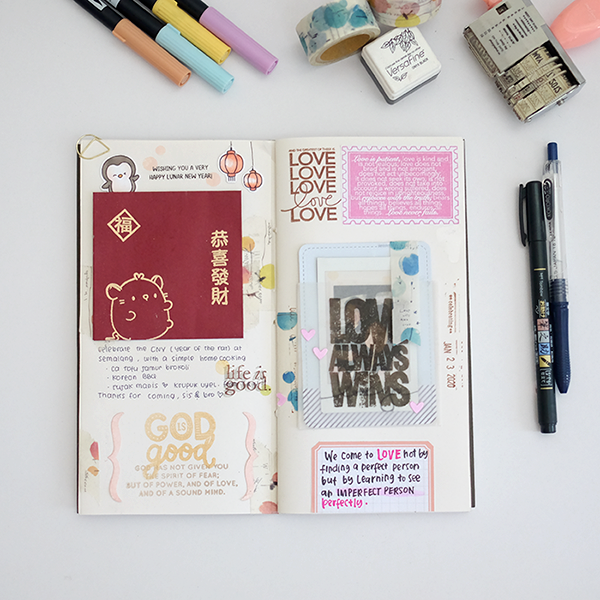 VERSAFINE
WISHING YOU A VERY
HAPPY LUNAR NEW YEAR!
福
恭喜發財
celebrate the CNY (year of the rat) at
semarang, with a simple home cooking
- korean BBQ
Thanks for coming, sis & bro
life is
good.
GOD
IS
good
GOD HAS NOT GIVEN YOU
THE SPIRIT OF FEAR;
BUT OF POWER, AND OF LOVE,
AND OF A SOUND MIND.
LOVE
LOVE
LOVE
love
LOVE
Love is patient, love is kind and
is not jealous; love does not
Love never fails.
LOVE
ALWAYS
WINS
JAN 23 2020
We come to LOVE not by
finding a perfect person
but by learning to see
an IMPERFECT PERSON
perfectly.